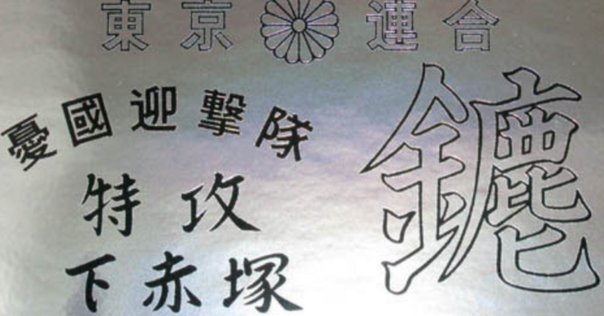 東京連合
憂國迎撃隊
特攻
下赤塚
鑣